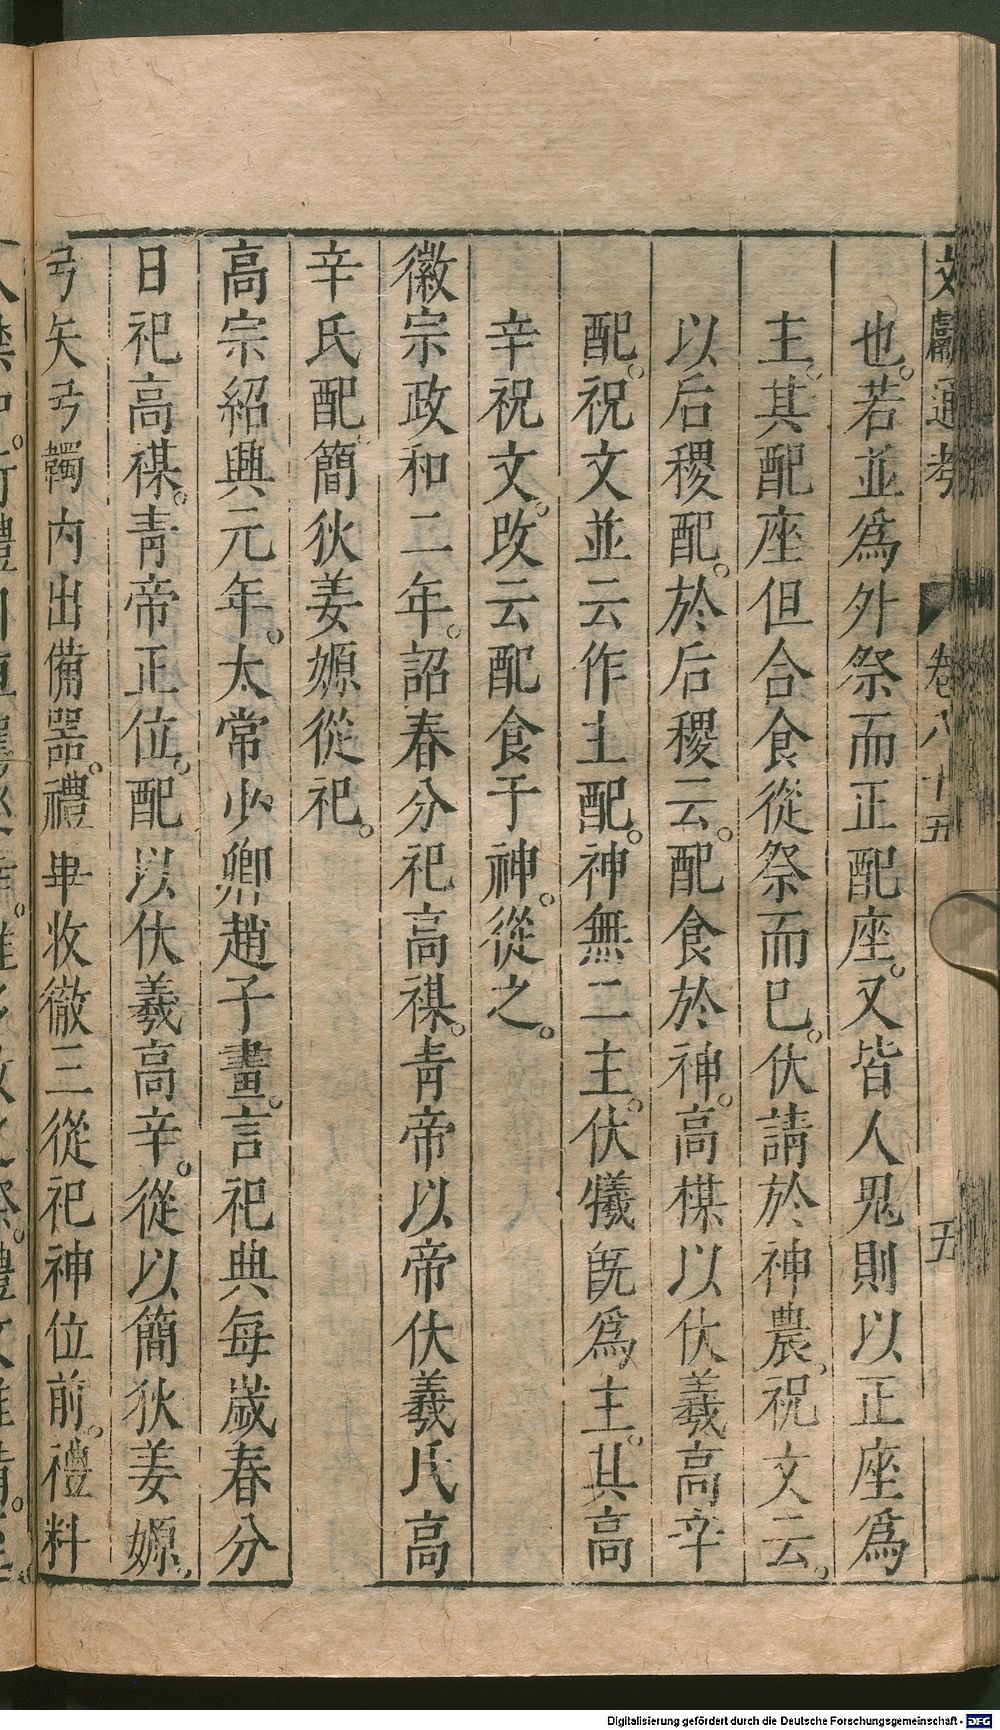 文獻通考 卷八十五 五
也。若並爲外祭而正配座。又皆人鬼則以正座爲
主。其配座但合食從祭而已。伏請於神農。祝文云。
以后稷配。於后稷云。配食於神。高禖以伏羲高辛
配。祝文並云作主配。神無二主。伏犧旣爲主。其高
辛祝文。改云配食于神。從之。
徽宗政和二年。詔春分祀高禖。靑帝以帝伏羲氏高
辛氏配。簡狄姜嫄從祀。
高宗紹興元年。太常少卿趙子畫。言祀典每歲春分
日祀高禖。靑帝正位。配以伏羲高辛。從以簡狄姜嫄。
弓矢弓韣内出備器。禮畢收徹三從祀神位前。禮料
Digitalisierung gefördert durch die Deutsche Forschungsgemeinschaft - DFG